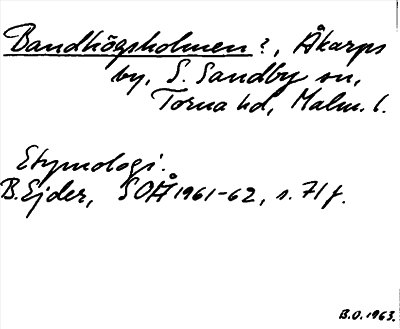 Bandhögsholmen?, Åkarps
by, S. Sandby sn,
Torna hd, Malm. l.
Etymologi.
B. Ejder, SOÅ 1961-62, s. 71 f.
B.O. 1963.